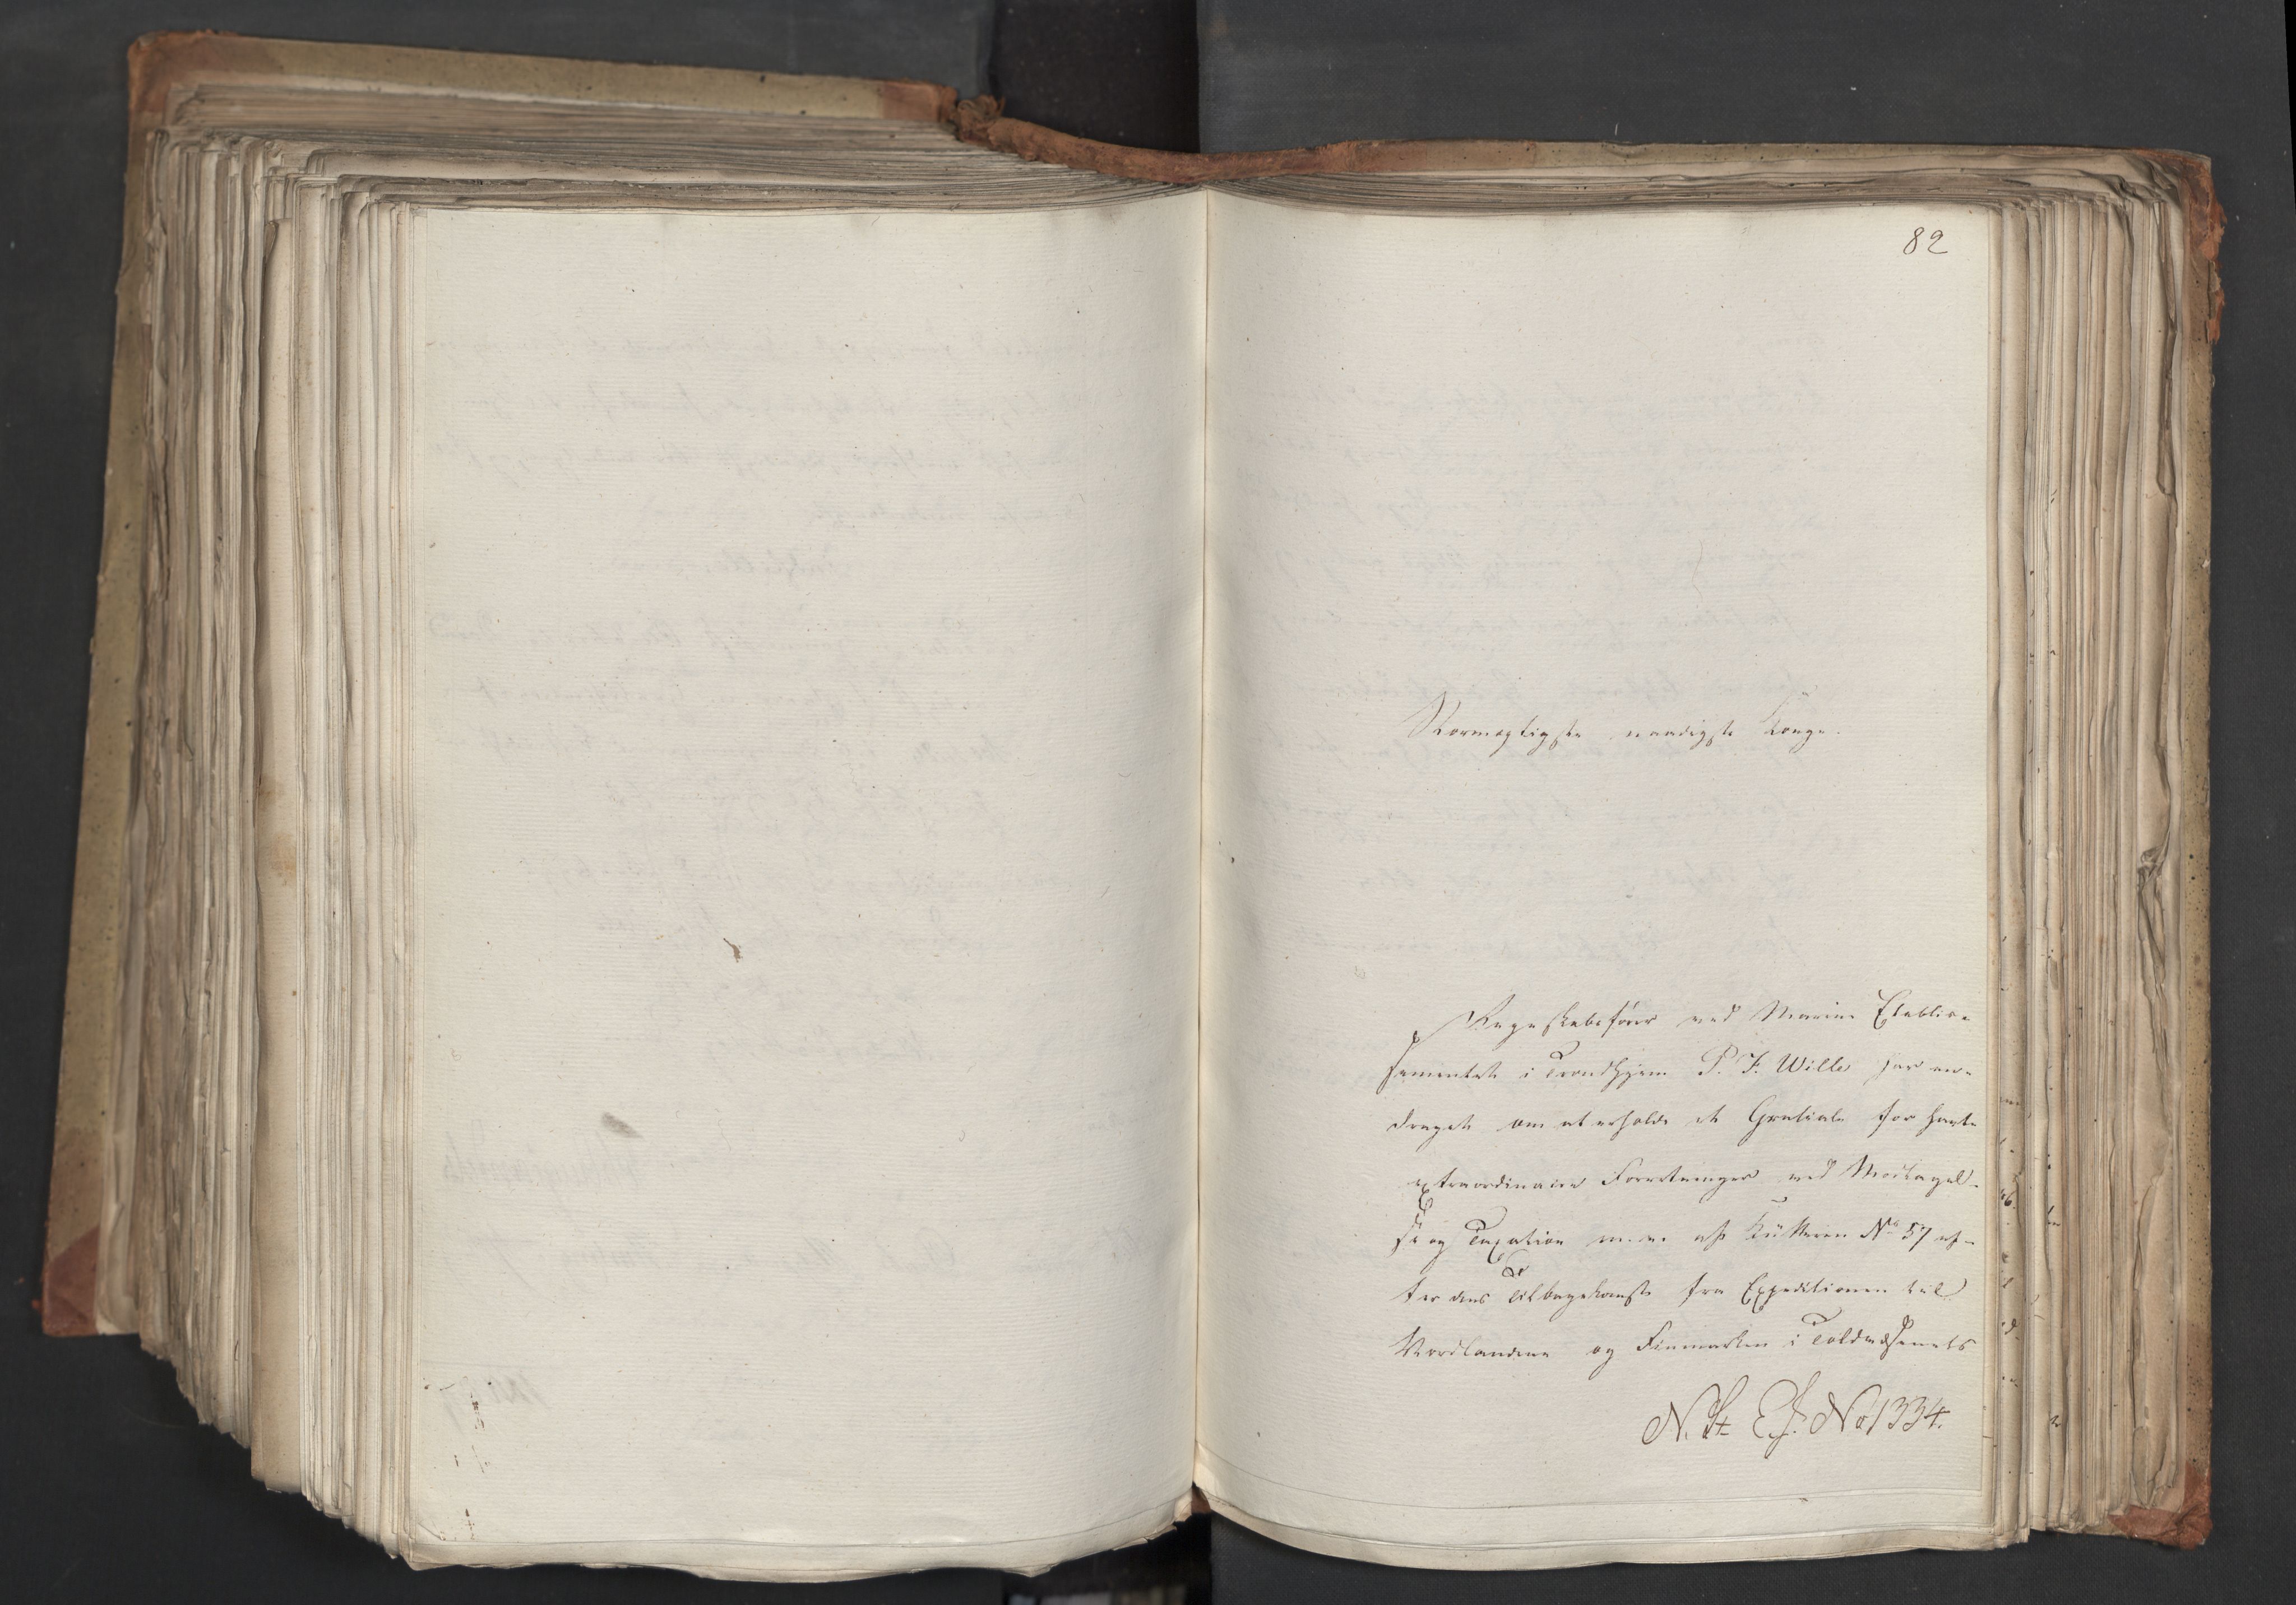 82
Stormægtigste naadigste Konge.
Regnskabsfører ved Marine Etablis-
sementet i Trondhjem P. F. Wille har an-
draget om at erholde et Gratiale for havte
extraordinaire Forretninger ved Modtagel-
se og Taxation m. v. af Kutteren No 57 ef-
ter dens Tilbagekomst fra Expeditionen til
Nordlandene og Finmarken i Toldvæsenets
N. St. E. J. No 1334.